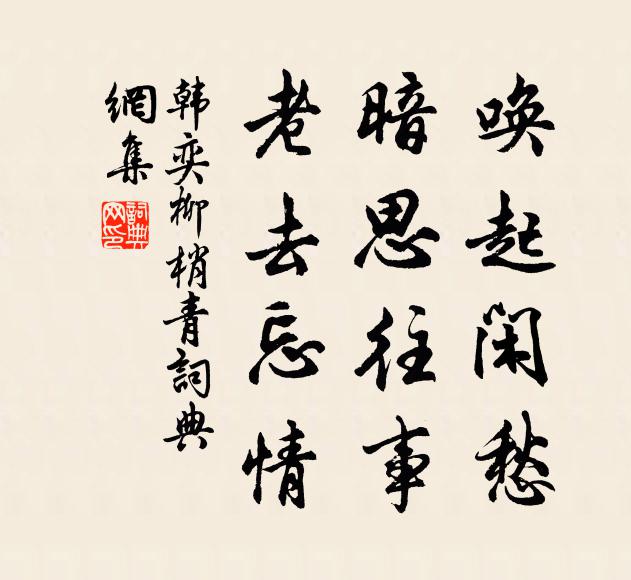 唤起闲愁
暗思往事
老去忘情
韩奕柳梢青詞典
網集
詞典
网印